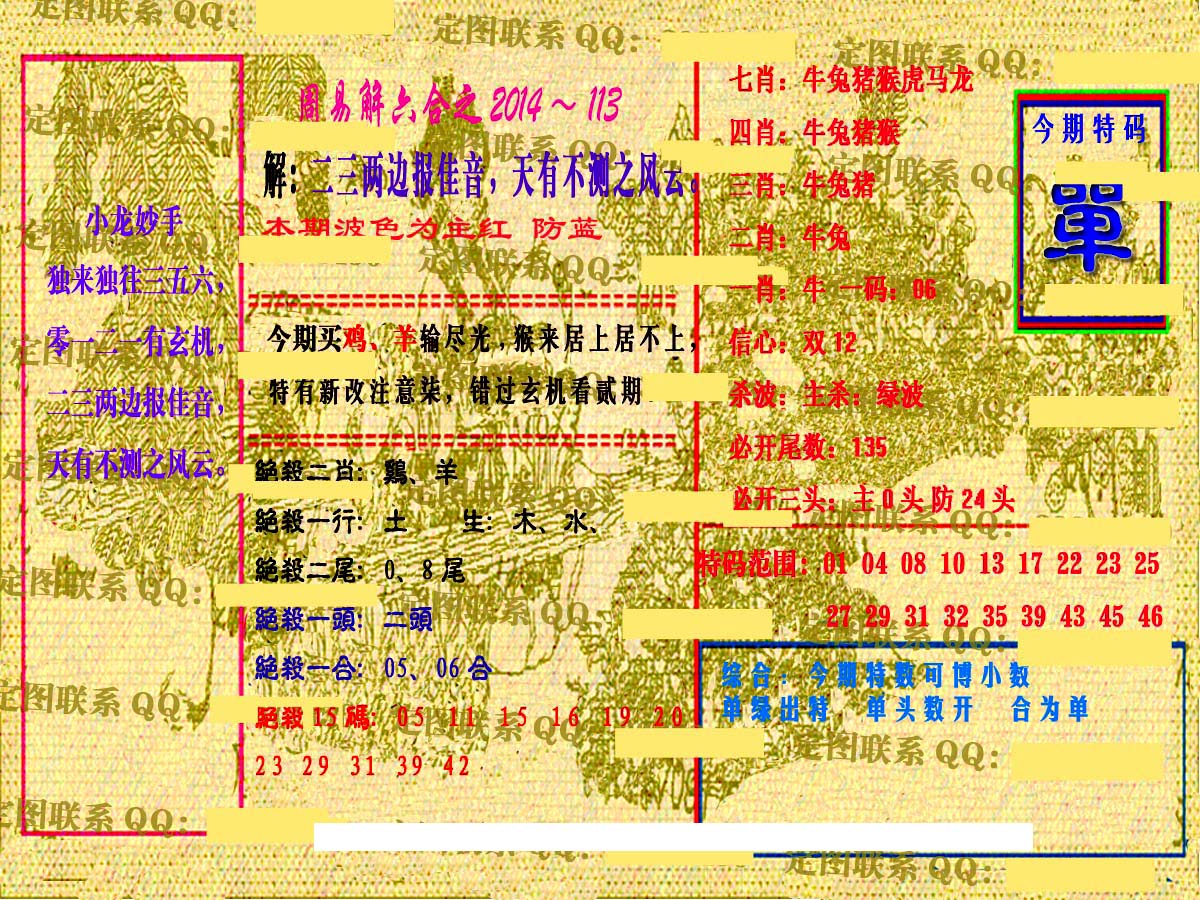 定图联系 QQ:
小龙妙手
独来独往三五六,
零一二一有玄机,
二三两边报佳音,
天有不测之风云。
周易解六合之 2014～113
解: 二三两边报佳音, 天有不测之风云。
本期波色为主红 防蓝
今期买鸡、羊输尽光,猴来居上居不上,
特有新改注意柒, 错过玄机看贰期
絕殺二肖: 鷄、羊
絕殺一行: 土 生: 木、水、
絕殺二尾: 0、8尾
絕殺一頭: 二頭
絕殺一合: 05、06合
絕殺15碼: 05 11 15 16 19 20
23 29 31 39 42
七肖: 牛兔猪猴虎马龙
四肖: 牛兔猪猴
三肖: 牛兔猪
二肖: 牛兔
一肖: 牛 一码: 06
信心: 双12
杀波: 主杀: 绿波
必开尾数: 135
必开三头: 主0头防24头
今期特码
單
特码范围: 01 04 08 10 13 17 22 23 25
27 29 31 32 35 39 43 45 46
综合: 今期特数可博小数
单绿出特 单头数开 合为单